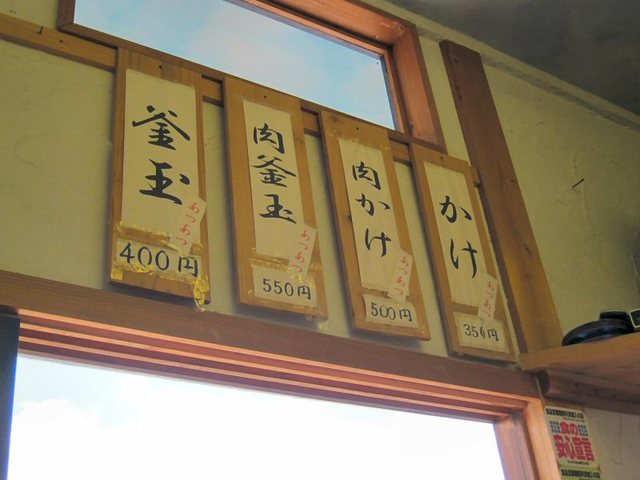 釜玉
あつあつ
400円
肉釜玉
あつあつ
550円
肉かけ
あつあつ
500円
かけ
あつあつ
350円
食の
安心宣言